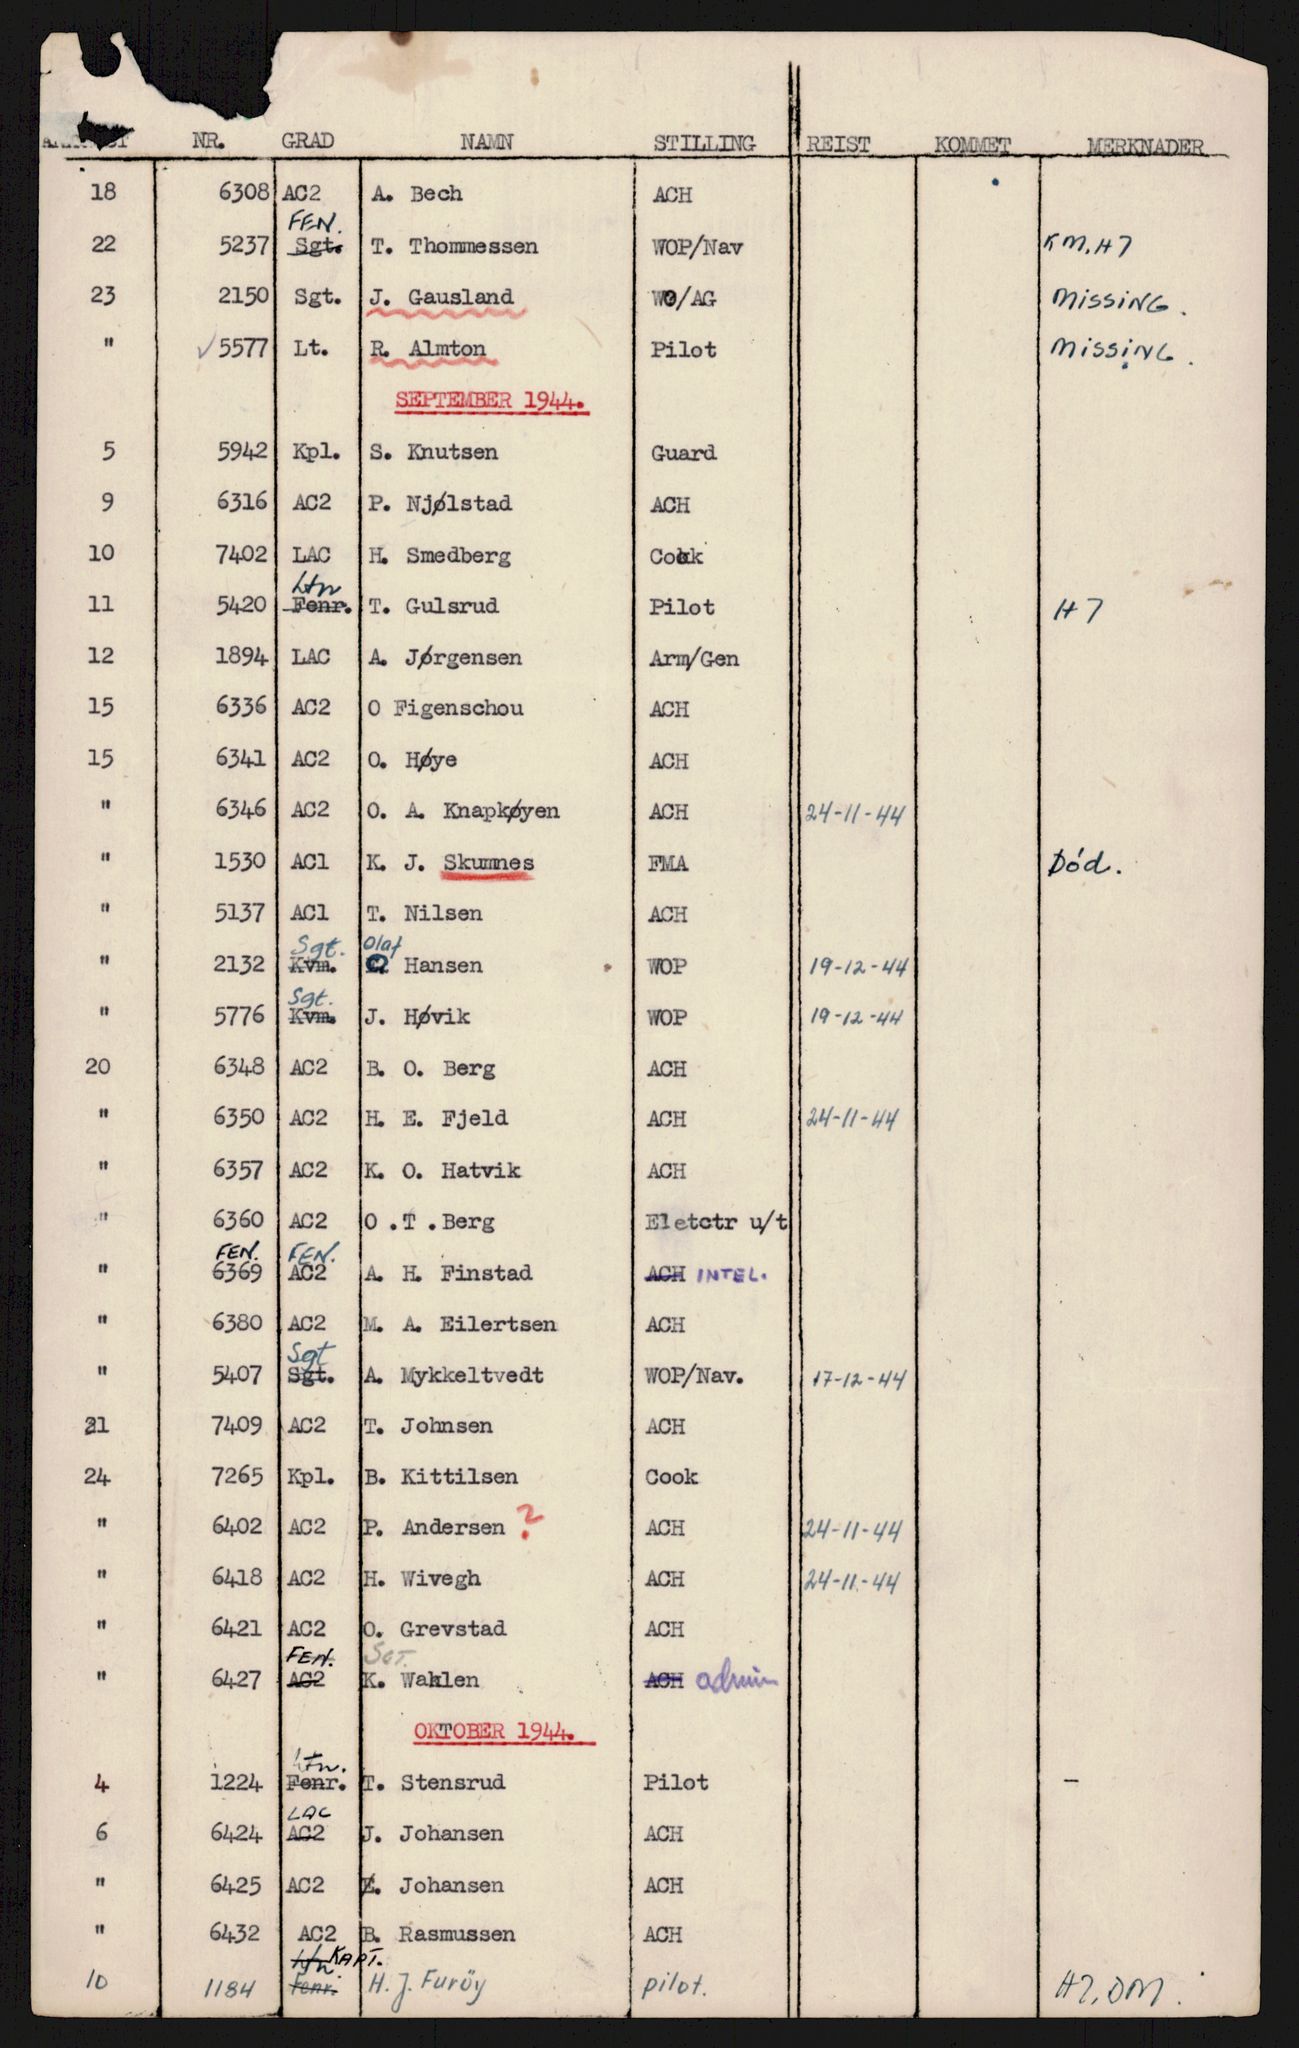 NR. GRAD NAMN STILLING REIST KOMMET MERKNADER
18 6308 AC2 A. Bech ACH
FEN.
22 5237 Sgt. T. Thommessen WOP/Nav KM, H7
23 2150 Sgt. J. Gausland WO/AG MISSING.
" √5577 Lt. R. Almton Pilot MISSING.
SEPTEMBER 1944.
5 5942 Kpl. S. Knutsen Guard
9 6316 AC2 P. Njølstad ACH
10 7402 LAC H. Smedberg Cook
Ltn
11 5420 Fenr. T. Gulsrud Pilot H7
12 1894 LAC A. Jørgensen Arm/Gen
15 6336 AC2 O Figenschou ACH
15 6341 AC2 O. Høye ACH
" 6346 AC2 O. A. Knapkøyen ACH 24-11-44
" 1530 AC1 K. J. Skumnes FMA Död.
" 5137 AC1 T. Nilsen ACH
Sgt. Olaf
" 2132 Kvm. O Hansen WOP 19-12-44
Sgt.
" 5776 Kvm. J. Høvik WOP 19-12-44
20 6348 AC2 B. O. Berg ACH
" 6350 AC2 H. E. Fjeld ACH 24-11-44
" 6357 AC2 K. O. Hatvik ACH
" 6360 AC2 O .T .Berg Eletctr u/t
FEN. FEN.
" 6369 AC2 A. H. Finstad ACH INTEL.
" 6380 AC2 M. A. Eilertsen ACH
Sgt
" 5407 Sgt. A. Mykkeltvedt WOP/Nav. 17-12-44
21 7409 AC2 T. Johnsen ACH
24 7265 Kpl. B. Kittilsen Cook
" 6402 AC2 P. Andersen ? ACH 24-11-44
" 6418 AC2 H. Wivegh ACH 24-11-44
" 6421 AC2 O. Grevstad ACH
FEN. SGT.
" 6427 AC2 K. Wahlen ACH admin
OKTOBER 1944.
Ltn.
4 1224 Fenr. T. Stensrud Pilot –
LAC
6 6424 AC2 J. Johansen ACH
" 6425 AC2 E. Johansen ACH
" 6432 AC2 B. Rasmussen ACH
Ltn KAPT.
10 1184 Fenr. H. J. Furöy pilot. H7, DM.